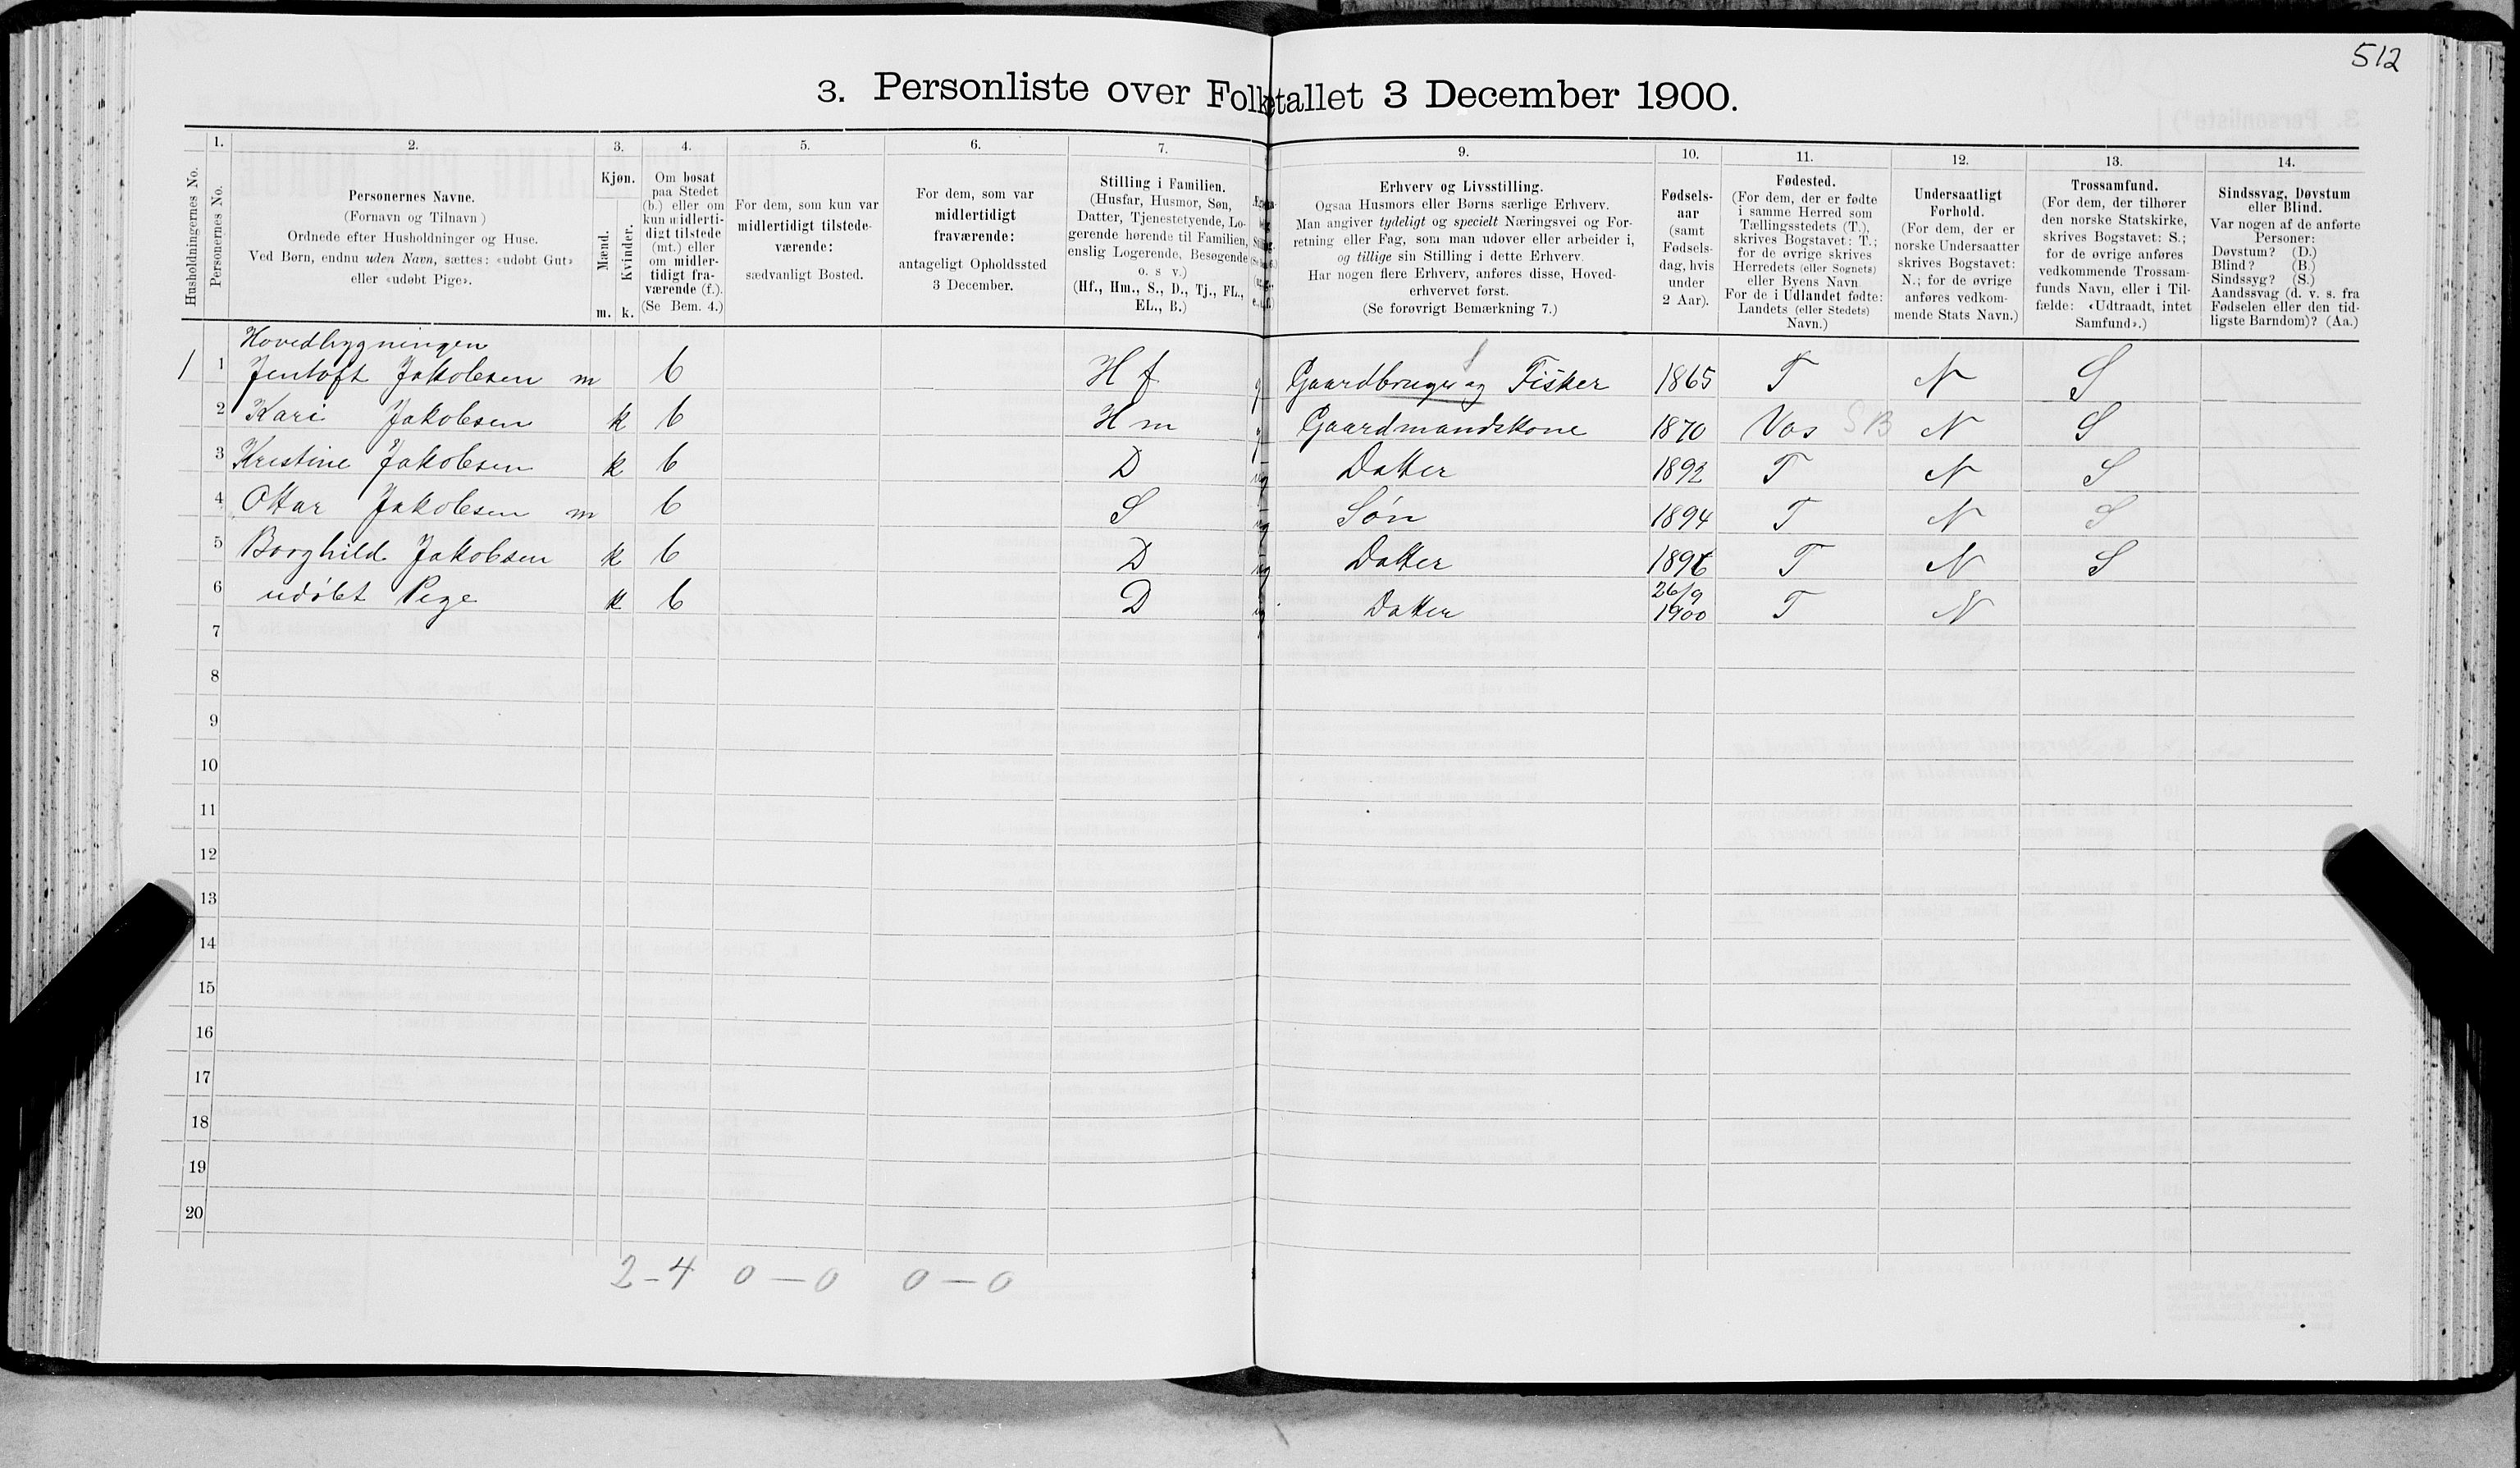 512
3. Personliste over Folketallet 3 December 1900.
Husholdningernes No.
1.
Personernes No.
2.
Personernes Navne.
(Fornavn og Tilnavn)
Ordnede efter Husholdninger og Huse.
Ved Børn, endnu uden Navn, sættes: «udøbt Gut»
eller «udøbt Pige».
3.
Kjøn.
Mænd.
Kvinder.
m. k.
4.
Om bosat
paa Stedet
(b.) eller om
kun midlerti-
digt tilstede
(mt.) eller
om midler-
tidigt fra-
værende (f.).
(Se Bem. 4.)
5.
For dem, som kun var
midlertidigt tilstede-
værende:
sædvanligt Bosted.
6.
For dem, som var
midlertidigt
fraværende:
antageligt Opholdssted
3 December.
7.
Stilling i Familien.
(Husfar, Husmor, Søn,
Datter, Tjenestetyende, Lo-
gerende hørende til Familien,
enslig Logerende, Besøgende
o. s v.)
(Hf., Hm., S., D., Tj., FL.,
EL., B.)
9.
Erhverv og Livsstilling.
Ogsaa Husmors eller Børns særlige Erhverv.
Man angiver tydeligt og specielt Næringsvei og For-
retning eller Fag, som man udøver eller arbeider i,
og tillige sin Stilling i dette Erhverv.
Har nogen flere Erhverv, anføres disse, Hoved-
erhvervet først.
(Se forøvrigt Bemærkning 7.)
10.
Fødsels-
aar
(samt
Fødsels-
dag, hvis
under
2 Aar).
11.
Fødested.
(For dem, der er fødte
i samme Herred som
Tællingsstedets (T.),
skrives Bogstavet: T.;
for de øvrige skrives
Herredets (eller Sognets)
eller Byens Navn
For de i Udlandet fødte:
Landets (eller Stedets)
Navn.)
12.
Undersaatligt
Forhold.
(For dem, der er
norske Undersaatter
skrives Bogstavet:
N.; for de øvrige
anføres vedkom-
mende Stats Navn.)
13.
Trossamfund.
(For dem, der tilhører
den norske Statskirke,
skrives Bogstavet: S.;
for de øvrige anføres
vedkommende Trossam-
funds Navn, eller i Til-
fælde: «Udtraadt, intet
Samfund».)
14.
Sindssvag, Døvstum
eller Blind.
Var nogen af de anførte
Personer:
Døvstum? (D.)
Blind? (B.)
Sindssyg? (S.)
Aandssvag (d. v. s. fra
Fødselen eller den tid-
ligste Barndom)? (Aa.)
Hovedbygningen
1 1 Jentoft Jakobsen m b Hf g Gaardbruger og Fisker 1865 T N S
2 Kari Jakobsen k b Hm g Gaardmandskone 1870 Vos SB N S
3 Kristine Jakobsen k b D ug Datter 1892 T N S
4 Ottar Jakobsen m b S ug Søn 1894 T N S
5 Borghild Jakobsen k b D ug Datter 1896 T N S
6 udøbt Pige k b D ug Datter 26/9 1900 T N
7
8
9
10
11
12
13
14
15
16
17
18
19
20
2-4 0-0 0-0